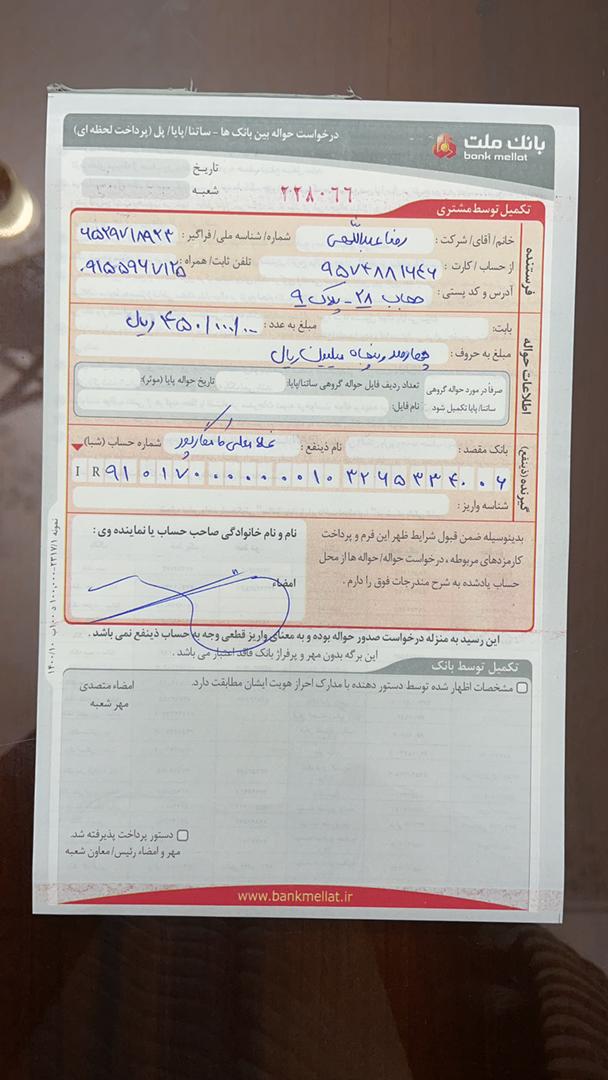 بانک ملت
bank mellat
درخواست حواله بین بانک ها - ساتنا/پایا/ پل (پرداخت لحظه ای)
تاریخ
شعبه
۲۲۸۰۶۶
تکمیل توسط مشتری
فرستنده
خانم/ آقای/ شرکت : رضا عبداللهی شماره/ شناسه ملی/ فراگیر : ۶۵۲۹۷۱۸۹۲۳
از حساب / کارت : ۹۵۷۴۸۸۱۶۴۶ تلفن ثابت/ همراه : ۰۹۱۵۵۹۶۷۱۲۵
آدرس و کد پستی : حجاب ۲۸ - پلاک ۹
اطلاعات حواله
بابت: مبلغ به عدد : ۴۵۰/۱۰۰۰/۰۰ ریال
مبلغ به حروف : چهارصد و پنجاه میلیون ریال
صرفاً در مورد حواله گروهی ساتنا/پایا تکمیل شود
تعداد ردیف فایل حواله گروهی ساتنا/پایا: تاریخ حواله پایا (موثر):
نام فایل:
گیرنده (ذینفع)
بانک مقصد : نام ذینفع : شماره حساب (شبا)
IR ۹۱۰۱۷۰۰۰۰۰۰۰۱۰۳۲۶۵۳۳۴۰۰۶
شناسه واریز :
بدینوسیله ضمن قبول شرایط ظهر این فرم و پرداخت
کارمزدهای مربوطه، درخواست حواله/ حواله ها از محل
حساب یادشده به شرح مندرجات فوق را دارم .
نام و نام خانوادگی صاحب حساب یا نماینده وی :
امضاء
این رسید به منزله درخواست صدور حواله بوده و به معنای واریز قطعی وجه به حساب ذینفع نمی باشد .
این برگه بدون مهر و پرفراژ بانک فاقد اعتبار می باشد .
تکمیل توسط بانک
مشخصات اظهار شده توسط دستور دهنده با مدارک احراز هویت ایشان مطابقت دارد.
امضاء متصدی
مهر شعبه
دستور پرداخت پذیرفته شد.
مهر و امضاء رئیس/ معاون شعبه
www.bankmellat.ir